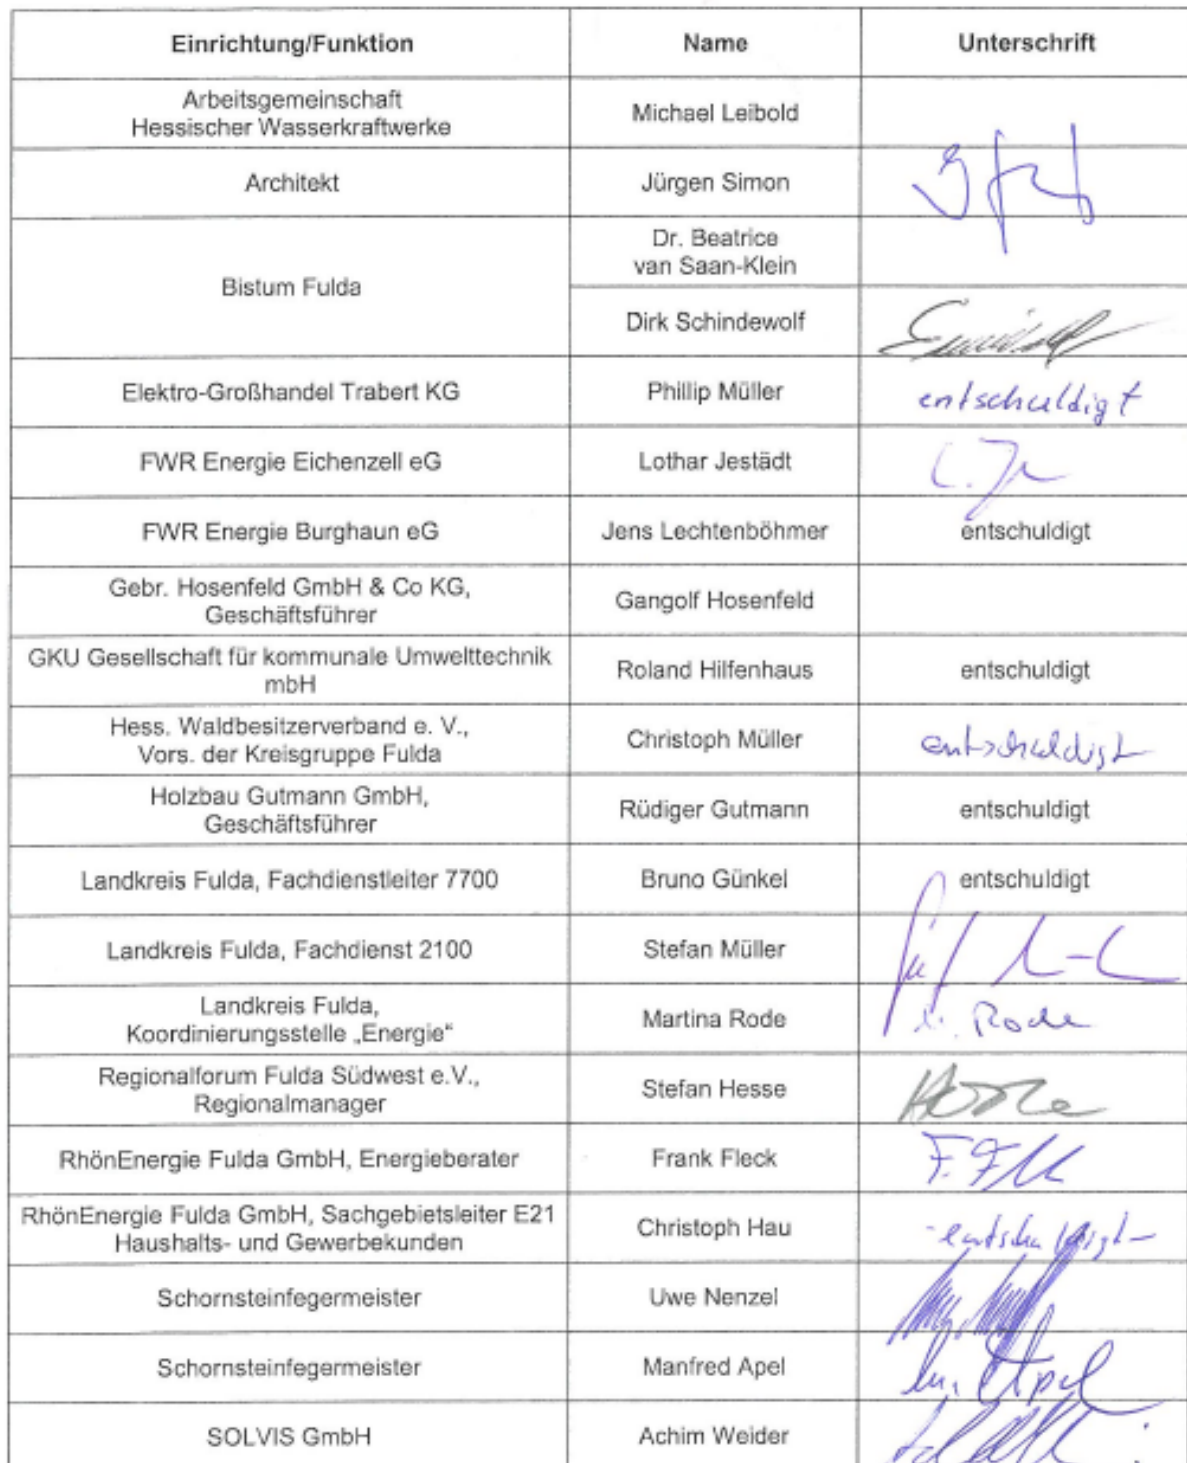 Einrichtung/Funktion Name Unterschrift
Arbeitsgemeinschaft
Hessischer Wasserkraftwerke Michael Leibold
Architekt Jürgen Simon
Bistum Fulda
Dr. Beatrice
van Saan-Klein
Dirk Schindewolf
Elektro-Großhandel Trabert KG Phillip Müller entschuldigt
FWR Energie Eichenzell eG Lothar Jestädt
FWR Energie Burghaun eG Jens Lechtenböhmer entschuldigt
Gebr. Hosenfeld GmbH & Co KG,
Geschäftsführer Gangolf Hosenfeld
GKU Gesellschaft für kommunale Umwelttechnik
mbH Roland Hilfenhaus entschuldigt
Hess. Waldbesitzerverband e. V.,
Vors. der Kreisgruppe Fulda Christoph Müller entschuldigt
Holzbau Gutmann GmbH,
Geschäftsführer Rüdiger Gutmann entschuldigt
Landkreis Fulda, Fachdienstleiter 7700 Bruno Günkel entschuldigt
Landkreis Fulda, Fachdienst 2100 Stefan Müller
Landkreis Fulda,
Koordinierungsstelle „Energie“ Martina Rode Rode
Regionalforum Fulda Südwest e.V.,
Regionalmanager Stefan Hesse
RhönEnergie Fulda GmbH, Energieberater Frank Fleck
RhönEnergie Fulda GmbH, Sachgebietsleiter E21
Haushalts- und Gewerbekunden Christoph Hau -entschuldigt-
Schornsteinfegermeister Uwe Nenzel
Schornsteinfegermeister Manfred Apel Apel
SOLVIS GmbH Achim Weider